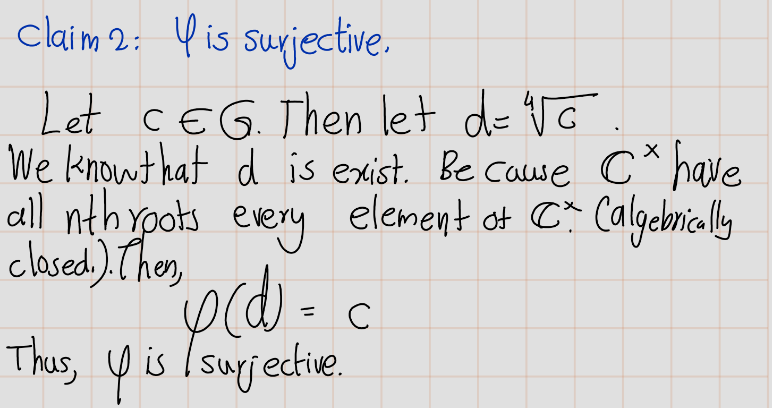 Claim 2: φ is surjective.
Let c ∈ G. Then let d = ∜c .
We know that d is exist. Because ℂ^× have
all nth roots every element of ℂ^×. (algebrically
closed.). Then,
φ(d) = c
Thus, φ is surjective.